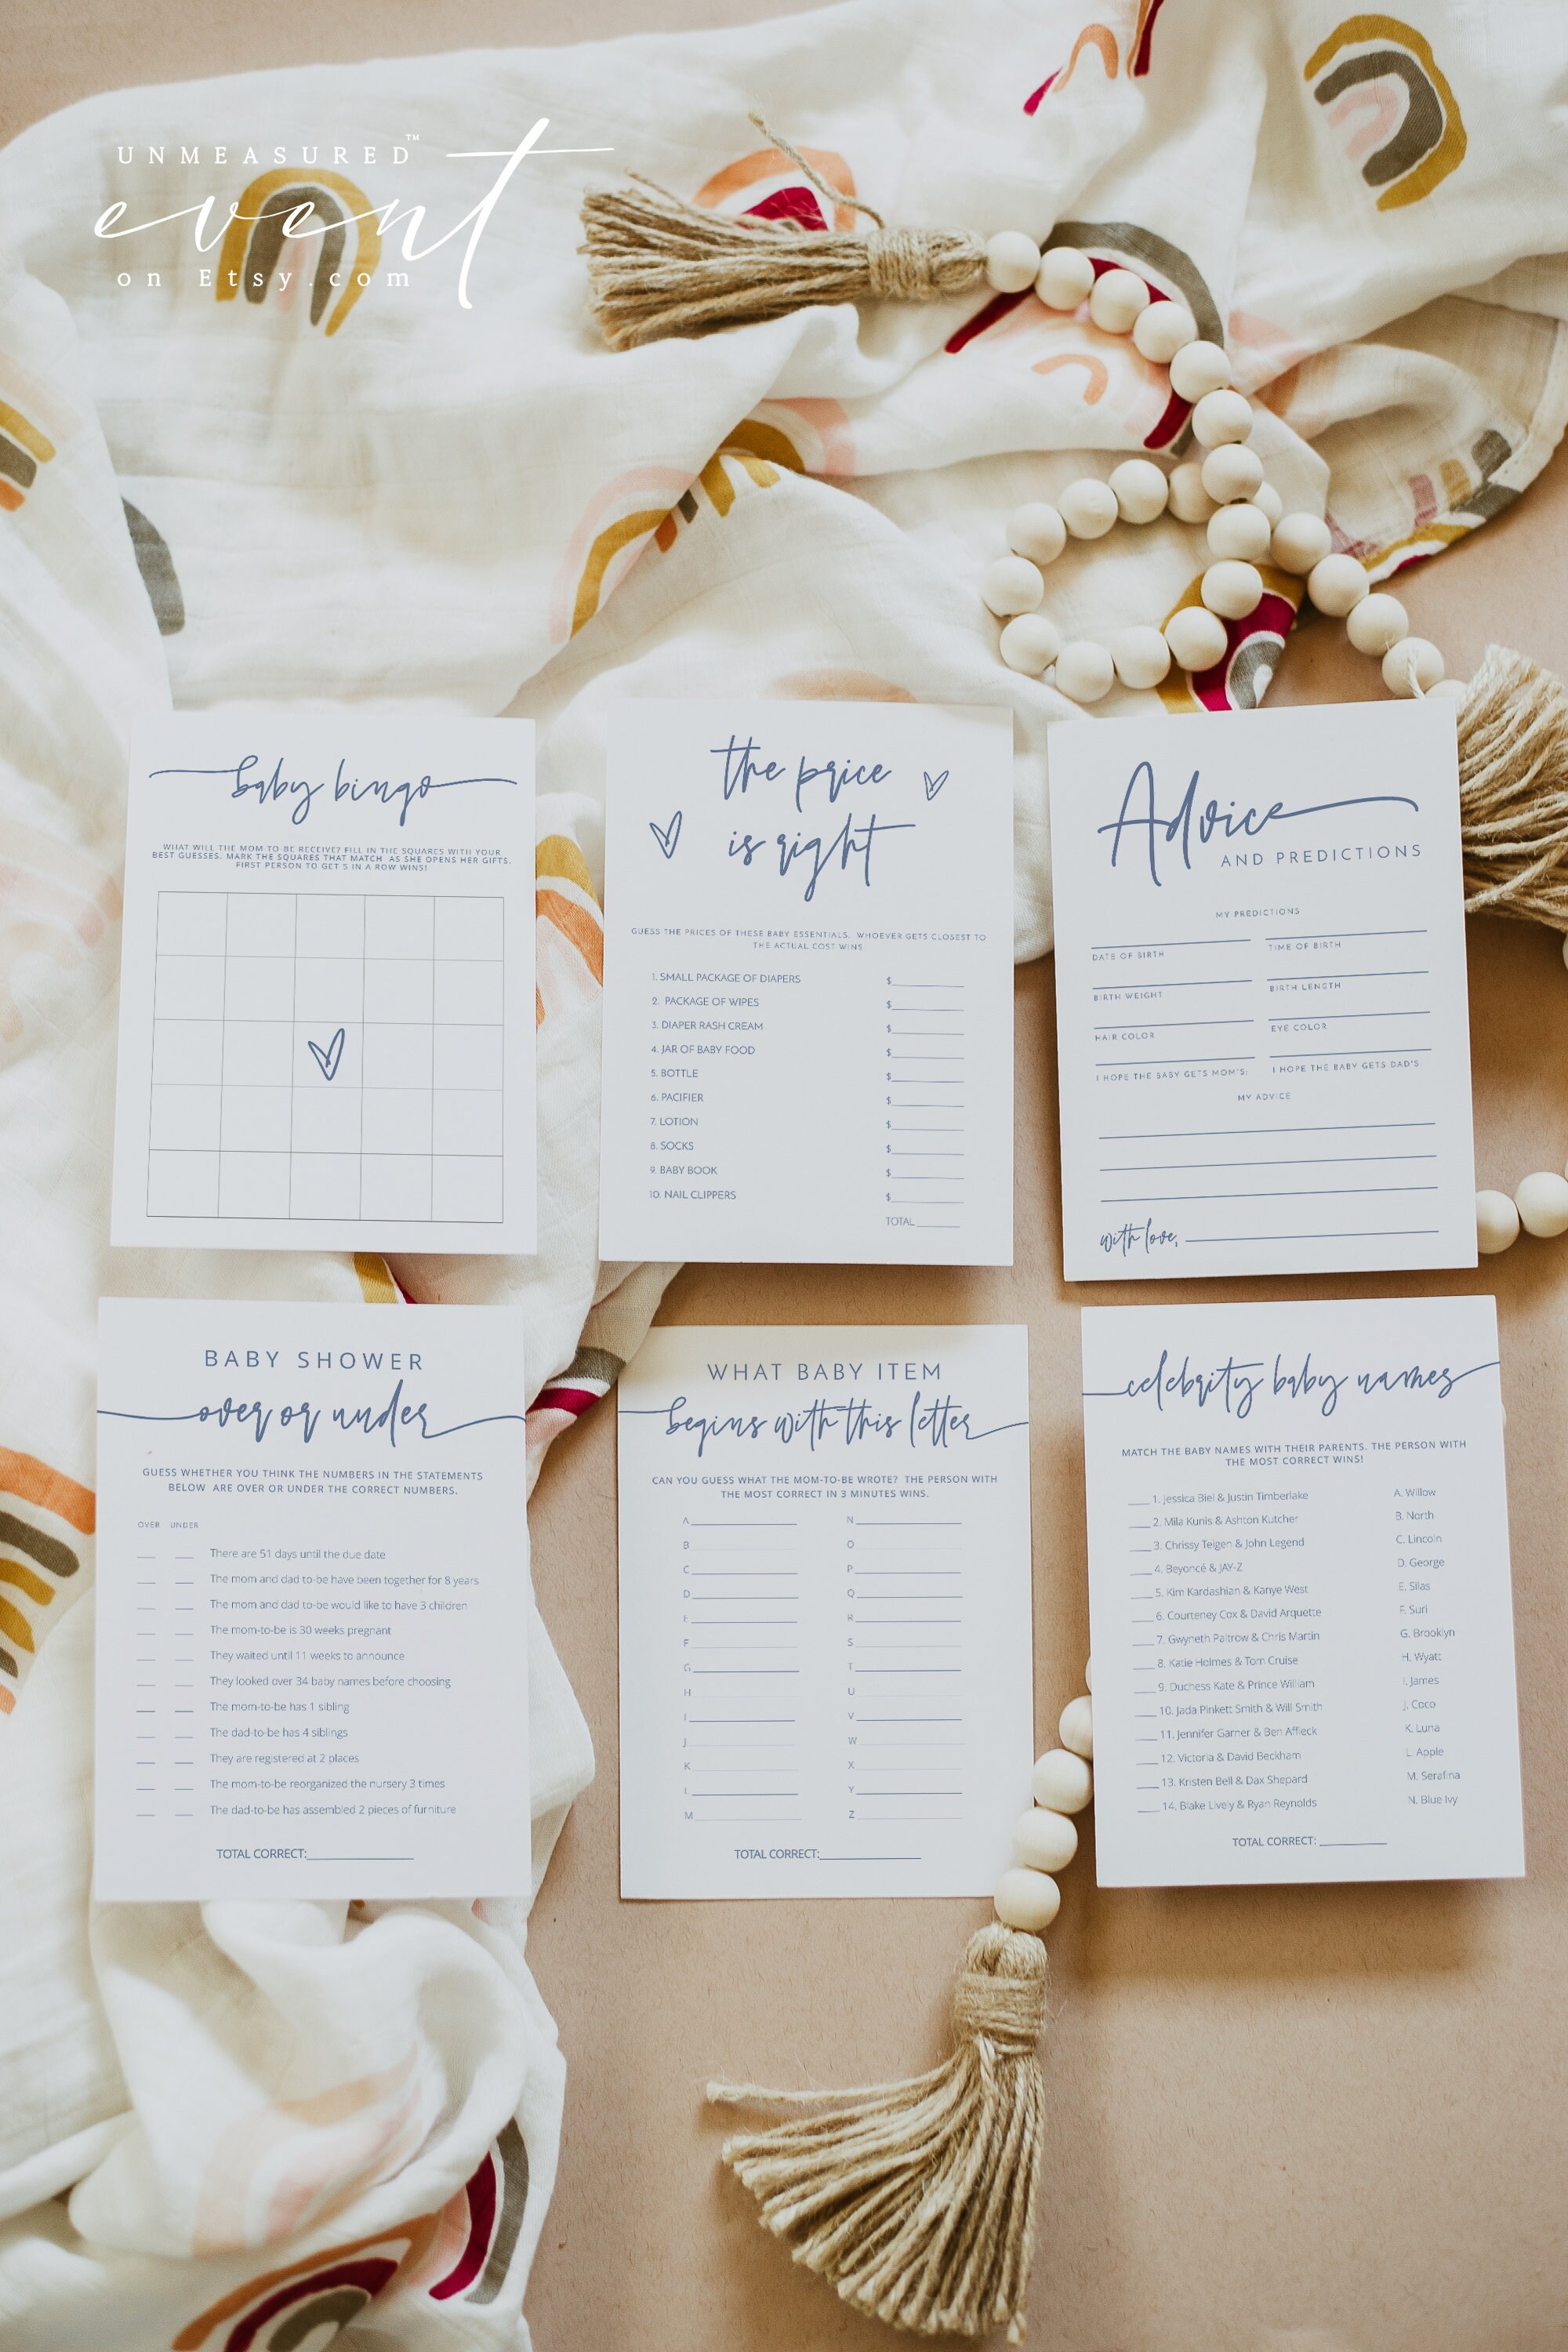 UNMEASURED™
event
on Etsy.com
baby bingo
WHAT WILL THE MOM-TO-BE RECEIVE? FILL IN THE SQUARES WITH YOUR
BEST GUESSES. MARK THE SQUARES THAT MATCH AS SHE OPENS HER GIFTS.
FIRST PERSON TO GET 5 IN A ROW WINS!
the price
is right
GUESS THE PRICES OF THESE BABY ESSENTIALS. WHOEVER GETS CLOSEST TO
THE ACTUAL COST WINS
1. SMALL PACKAGE OF DIAPERS $
2. PACKAGE OF WIPES $
3. DIAPER RASH CREAM $
4. JAR OF BABY FOOD $
5. BOTTLE $
6. PACIFIER $
7. LOTION $
8. SOCKS $
9. BABY BOOK $
10. NAIL CLIPPERS $
TOTAL
Advice
AND PREDICTIONS
MY PREDICTIONS
DATE OF BIRTH TIME OF BIRTH
BIRTH WEIGHT BIRTH LENGTH
HAIR COLOR EYE COLOR
I HOPE THE BABY GETS MOM'S: I HOPE THE BABY GETS DAD'S
MY ADVICE
with love,
BABY SHOWER
over or under
GUESS WHETHER YOU THINK THE NUMBERS IN THE STATEMENTS
BELOW ARE OVER OR UNDER THE CORRECT NUMBERS.
OVER UNDER
There are 51 days until the due date
The mom and dad to-be have been together for 8 years
The mom and dad to-be would like to have 3 children
The mom-to-be is 30 weeks pregnant
They waited until 11 weeks to announce
They looked over 34 baby names before choosing
The mom-to-be has 1 sibling
The dad-to-be has 4 siblings
They are registered at 2 places
The mom-to-be reorganized the nursery 3 times
The dad-to-be has assembled 2 pieces of furniture
TOTAL CORRECT:
WHAT BABY ITEM
begins with this letter
CAN YOU GUESS WHAT THE MOM-TO-BE WROTE? THE PERSON WITH
THE MOST CORRECT IN 3 MINUTES WINS.
A N
B O
C P
D Q
E R
F S
G T
H U
I V
J W
K X
L Y
M Z
TOTAL CORRECT:
celebrity baby names
MATCH THE BABY NAMES WITH THEIR PARENTS. THE PERSON WITH
THE MOST CORRECT WINS!
1. Jessica Biel & Justin Timberlake A. Willow
2. Mila Kunis & Ashton Kutcher B. North
3. Chrissy Teigen & John Legend C. Lincoln
4. Beyoncé & JAY-Z D. George
5. Kim Kardashian & Kanye West E. Silas
6. Courteney Cox & David Arquette F. Suri
7. Gwyneth Paltrow & Chris Martin G. Brooklyn
8. Katie Holmes & Tom Cruise H. Wyatt
9. Duchess Kate & Prince William I. James
10. Jada Pinkett Smith & Will Smith J. Coco
11. Jennifer Garner & Ben Affleck K. Luna
12. Victoria & David Beckham L. Apple
13. Kristen Bell & Dax Shepard M. Serafina
14. Blake Lively & Ryan Reynolds N. Blue Ivy
TOTAL CORRECT: